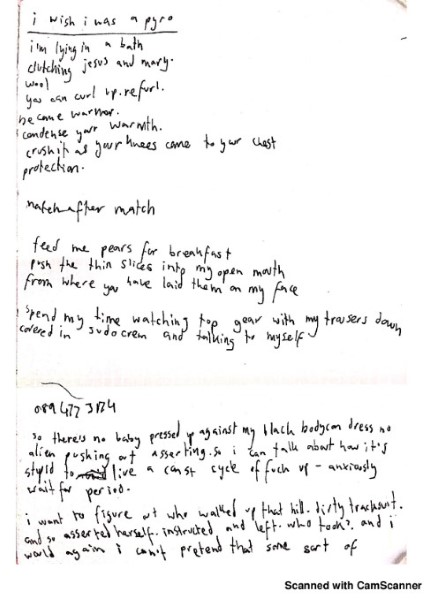 i wish i was a pyro
i'm lying in a bath
clutching jesus and mary.
wool
you can curl up. refurl.
become warmer.
condense your warmth.
crush it as your knees come to your chest
protection.
match after match
feed me pears for breakfast
push the thin slices into my open mouth
from where you have laid them on my face
spend my time watching top gear with my trousers down
covered in sudocrem and talking to myself
089 477 3174
so there's no baby pressed up against my black bodycon dress no
alien pushing out asserting. so i can talk about how it's
stupid to live a const cycle of fuck up - anxiously
wait for period.
i want to figure out who walked up that hill. dirty tracksuit.
and so asserted herself. instructed and left. who took?. and i
would again i cannot pretend that some sort of
Scanned with CamScanner